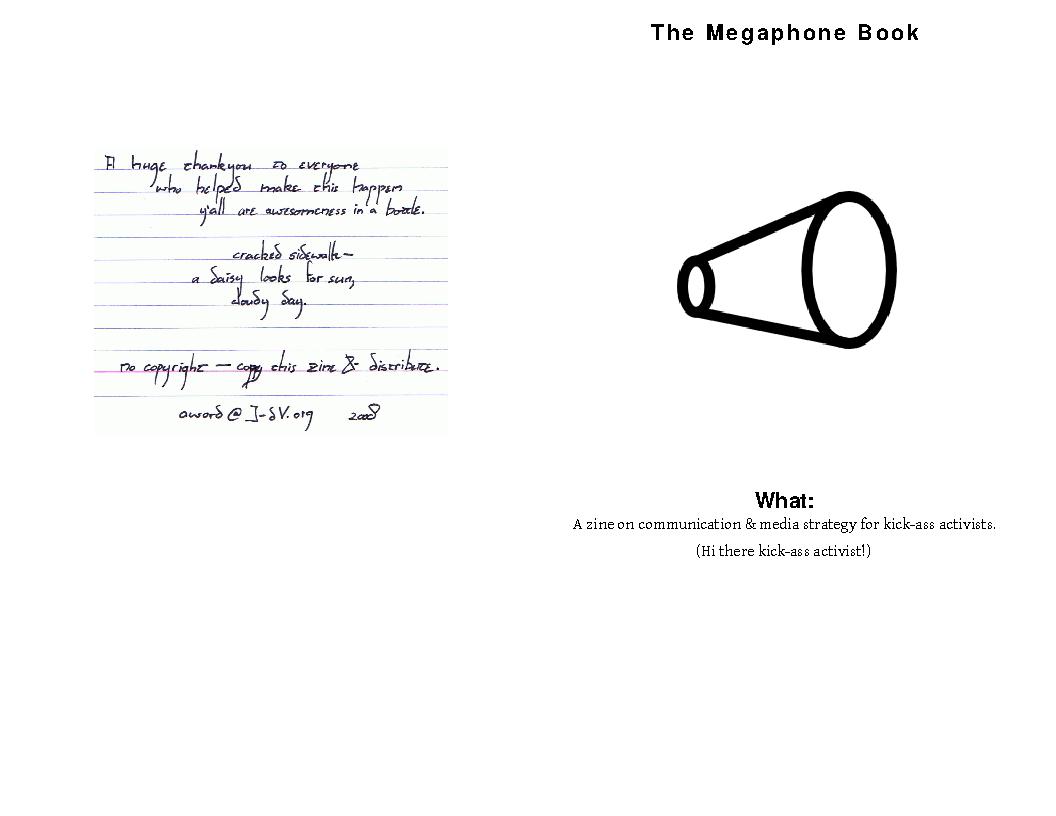 A huge thankyou to everyone
who helped make this happen
y'all are awesomeness in a bottle.
cracked sidewalk—
a daisy looks for sun,
cloudy day.
no copyright — copy this zine & distribute.
aword@J-dV.org 2008
The Megaphone Book
What:
A zine on communication & media strategy for kick-ass activists.
(Hi there kick-ass activist!)